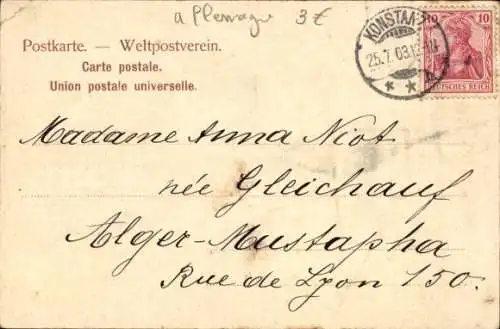 3 €
Postkarte. — Weltpostverein.
Carte postale.
Union postale universelle.
KONSTANZ
25.7.03.
10 10
DEUTSCHES REICH
Madame Anna Niot
née Gleichauf
Alger-Mustapha
Rue de Lyon 150.